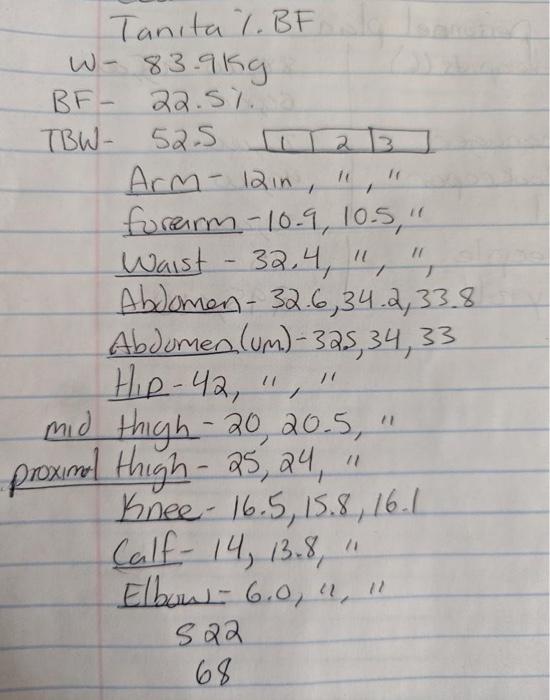 Tanita %. BF
W- 83.9Kg
BF- 22.5%.
TBW- 52.5 1 2 3
Arm - 12in, ", "
forearm - 10.9, 10.5, "
Waist - 32.4, ", ",
Abdomen - 32.6, 34.2, 33.8
Abdomen (um) - 325, 34, 33
Hip - 42, ", "
mid thigh - 20, 20.5, "
proximal thigh - 25, 24, "
Knee - 16.5, 15.8, 16.1
Calf - 14, 13.8, "
Elbow - 6.0, ", "
S 22
68